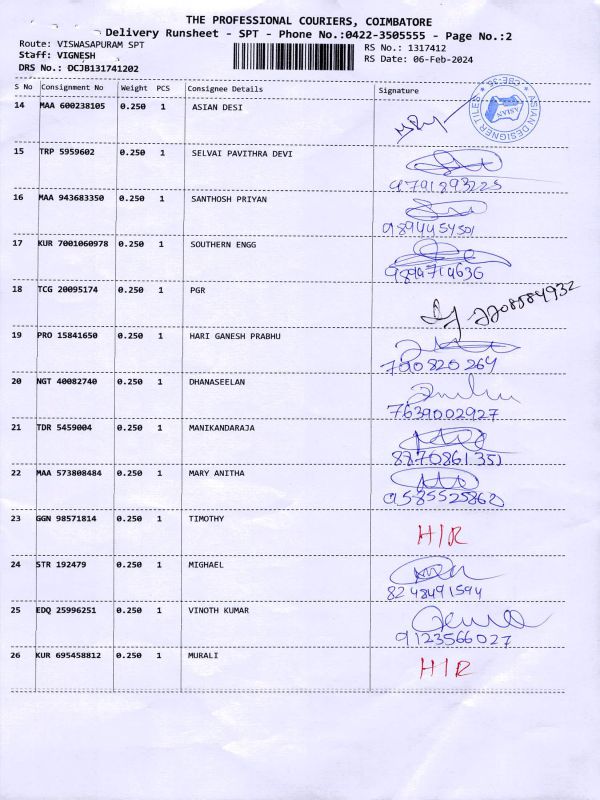 THE PROFESSIONAL COURIERS, COIMBATORE
Delivery Runsheet - SPT - Phone No.:0422-3505555 - Page No.:2
Route: VISWASAPURAM SPT
RS No.: 1317412
Staff: VIGNESH
RS Date: 06-Feb-2024
DRS No.: DCJB131741202
S No Consignment No Weight PCS Consignee Details Signature
14 MAA 600238105 0.250 1 ASIAN DESI
ASIAN DESIGNER TILES
ASIAN
CBE-35
15 TRP 5959602 0.250 1 SELVAI PAVITHRA DEVI
9791893225
16 MAA 943683350 0.250 1 SANTHOSH PRIYAN
9894454501
17 KUR 7001060978 0.250 1 SOUTHERN ENGG
9894714636
18 TCG 20095174 0.250 1 PGR
19 PRO 15841650 0.250 1 HARI GANESH PRABHU
790820264
20 NGT 40082740 0.250 1 DHANASEELAN
7639002927
21 TDR 5459004 0.250 1 MANIKANDARAJA
8870861351
22 MAA 573808484 0.250 1 MARY ANITHA
9585525862
23 GGN 98571814 0.250 1 TIMOTHY H/R
24 STR 192479 0.250 1 MIGHAEL
8248491594
25 EDQ 25996251 0.250 1 VINOTH KUMAR
9123566027
26 KUR 695458812 0.250 1 MURALI H/R